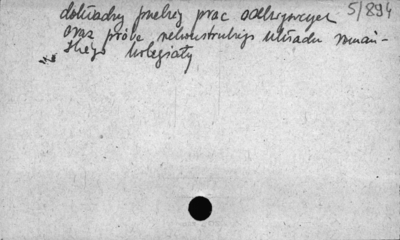 dokładny przebieg prac odkrywczych 5/894
oraz próbę rekonstrukcji układu romań-
skiego kolegiaty